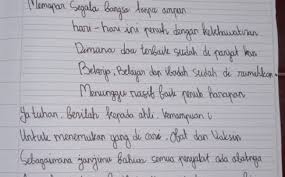 Menapar Segala Bangsa tanpa ampun
hari - hari ini penuh dengan kekhawatiran
Dimana doa terbaik sudah di panjat kan
Bekerja, Belajar dan Ibadah sudah di rumahkan
Menunggu nasib baik penuh harapan
Ya tuhan. Berilah kepada ahli kemampuan
Untuk menemukan yang di cari obat dan Vaksin
Sebagaimana janjimu Bahwa semua penyakit ada obatnya